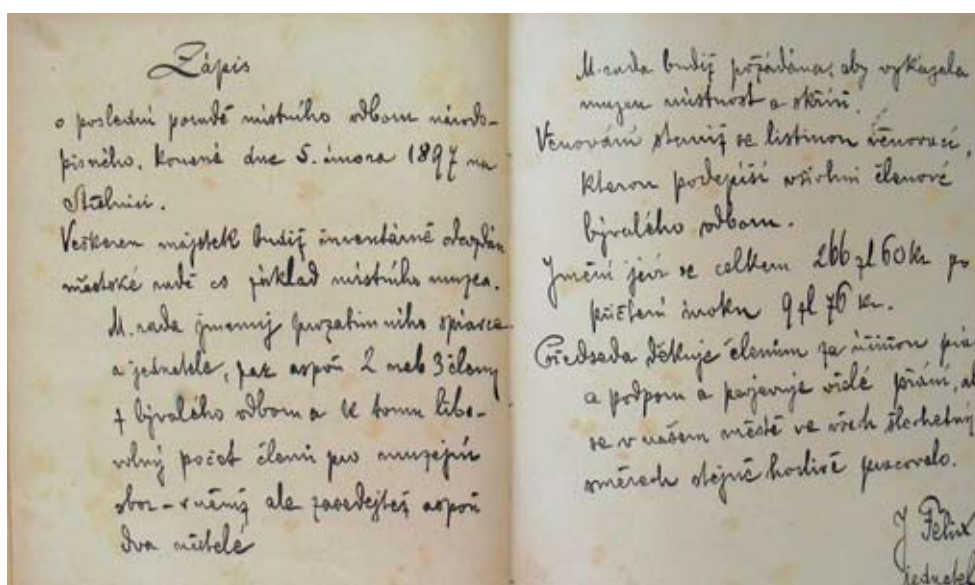 Zápis
o poslední poradě místního odboru národo-
pisného, konané dne 5. února 1897 na
Střelnici.
Veškeren majetek budiž inventárně odevzdán
městské radě co základ místního muzea.
M. rada jmenuj prozatimního správce
a jednatele, pak aspoň 2 neb 3 členy
z bývalého odboru a k tomu libo-
volný počet členů pro muzejní
sbor – v němž ale zasedejtež aspoň
dva učitelé
M. rada budiž požádána, aby vykázala
muzeu místnost a skříň.
Věnování staniž se listinou věnovací,
kterou podepíší všichni členové
bývalého odboru.
Jmění jeví se celkem 266 zl 60 kr po
přičtení úroku 9 zl 76 kr.
Předseda děkuje členům za účinnou
a podporu a projevuje vřelé přání,
se v našem městě ve všech
směrech stejně horlivě pracovalo.
J Felix